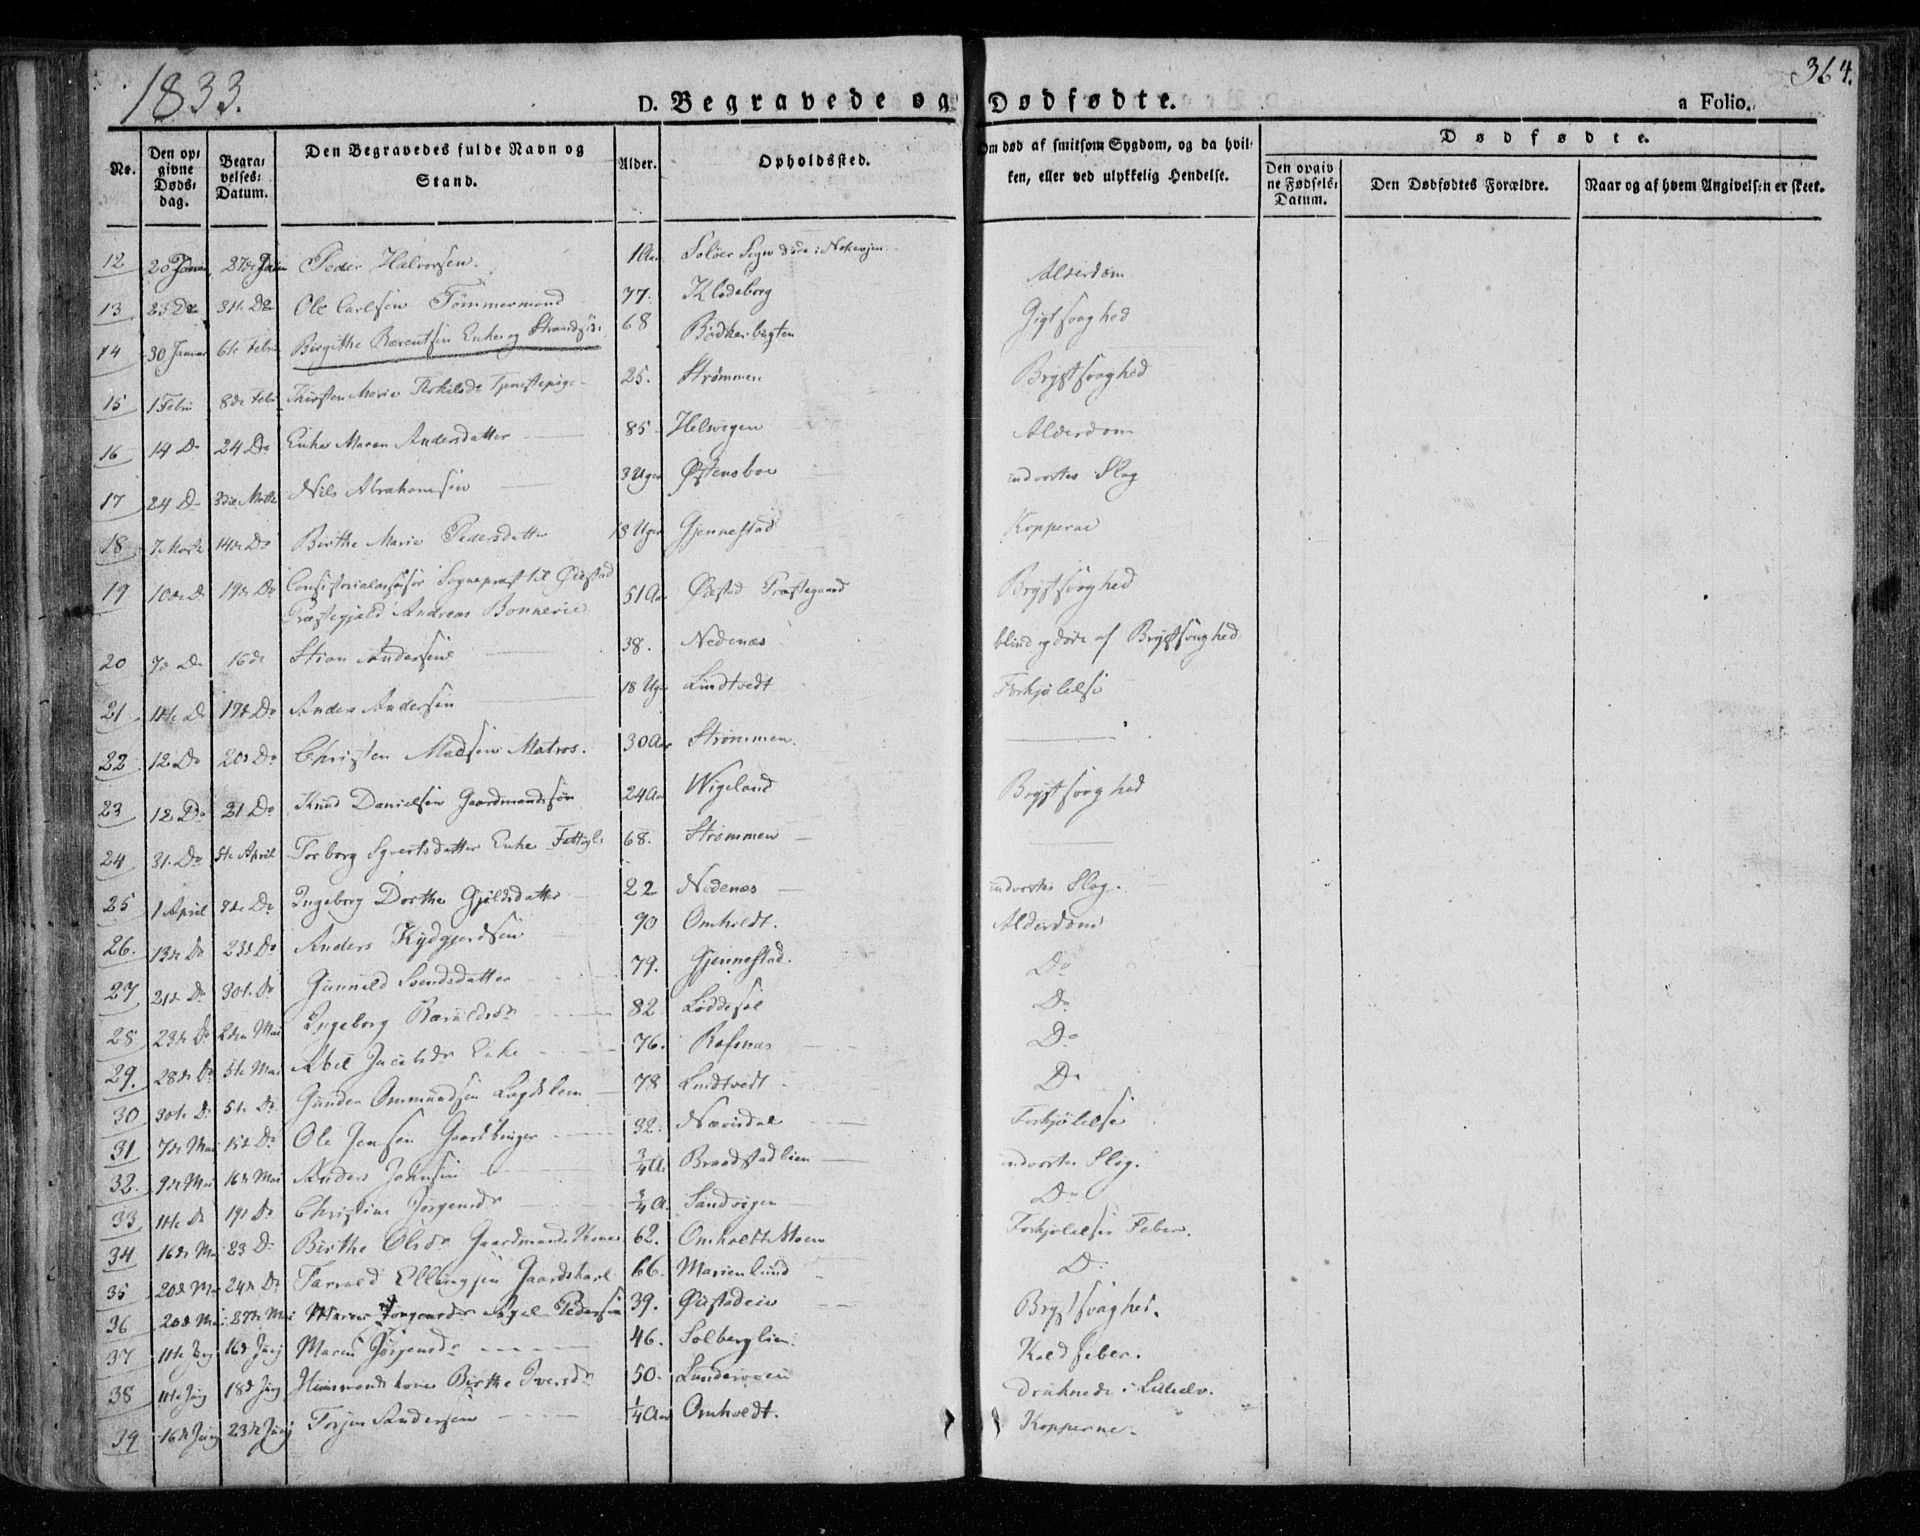 1833.
D. Begravede og Dødfødte.
a Folio.
364.
No.
Den opgivne Døds-dag.
Begravelses-Datum.
Den Begravedes fulde Navn og Stand.
Alder.
Opholdssted.
Om død af smitsom Sygdom, og da hvilken, eller ved ulykkelig Hendelse.
Dødfødte.
Den opgivne Fødsels-Datum.
Den Dødfødtes Forældre.
Naar og af hvem Angivelsen er skeet.
12 Peder Halvorsen. 1 Aar
13 25 Do Ole Carlsen Tømmermand 77. Klodeborg Alderdom
14 30 Januar 6te Febr Birgithe Berentsen Enke og 68 Bødkerbugten Gigtsvaghed
15 1 Febr 8de Febr Kirsten Marie Terkelsdr Tjenestepige 25. Strømmen Brystsvaghed
16 14 Do 24 Do Enke Maren Andersdatter 85 Helvigen Alderdom
17 24 Do Nils Abrahamsen 3 Uger Østensboe indvortes Slag
18 7 Marts 14de Do Birthe Marie Pedersdatter 18 Uger Gjennestad Kopperne
19 10de Do 19de Do Consistorialassesor Sognepræst til Øiestad
Præstegjæld Andreas Bonnevie 51 Aar Øiestad Præstegaard Brystsvaghed
20 Do 16de Stian Andersen 38. Nedenæs blind og døde af Brystsvaghed
21 11te Do 17de Do Anders Andersen 18 Uger Lindtvedt Forkjølelse
22 12 Do 20de Do Christen Madsen Matros. 30 Aar Strømmen.
23 12 Do 21 Do Knud Danielsen Gaardmandssøn 24 Aar Wigeland Brystsvaghed
24 31. Do April Torborg Syvertsdatter Enke 68. Strømmen
25 1 April 8de Do Ingeborg Dorthe Gjeldsdatter 22 Nedenæs indvortes Slag.
26. 13de Do 23de Do Anders Kydgjerdsen 90 Omholdt. Alderdom
27 21de Do 30te Do Gunnild Svendsdatter 79. Gjennestad. Do
28 23de Do Mai Ingeborg 82 Løddesøl Do
29. 28de Do 5te Mai Abel Jacobsdr Enke 76. Rafsnæs Do
30 30te Do 5te Do Gunder Ommundsen Lægdslem 78 Lindtvedt Do
31 7de Mai 15de Do Ole Jensen Gaardbruger 32. Nævisdal Forkjølelse
32. 9de Mai 16de Mai Anders Johnsen 3/4 A. Braadstadlien indvortes Slag.
33 11te Do 19de Do Christine Jørgensdr 3/4 A. Sandvigen Do
34 16de Mai 23 Do Birthe Olsdr Gaardmands Kone 62. Omholdt Moen Forkjølelses Feber.
35 20de Mai 24de Do Tarrald Ellingsen Gaardskarl 66. Marienlund Do
36 20de Mai 27de Mai Maren Jørgensdr Pedersen 39. Øiestadeie Brystsvaghed.
37 11te Junj 16de Junj Maren Jørgensdr 46. Solberglien. Koldfeber.
38 11te Junj 18de Junj Huusmandskone Birthe Iversdr 50. Lundevoien druknede i
39 16de Junj 23de Junj Torjus Andersen 1/4 Aar Omholdt. Kopperne